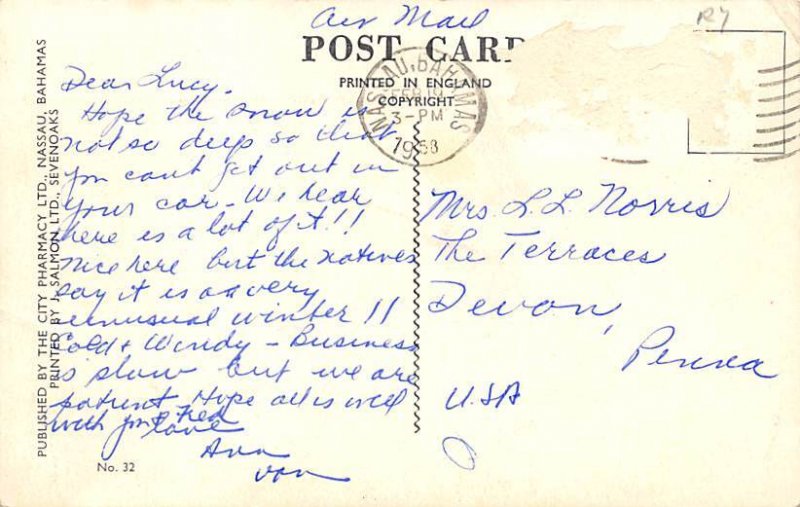 Air Mail
R7
POST CARD
PRINTED IN ENGLAND
COPYRIGHT
NASSAU, BAHAMAS
FEB 19
3-PM
1958
Dear Lucy.
Hope the snow is
not so deep so that
you cant get out in
your car - We hear
here is a lot of it!!
Nice here but the natives
say it is a very
unusual winter!!
Cold + Windy - Business
is slow but we are
patient. Hope all is well
with you + Fred
love
Ann
Van
Mrs L. L. Norris
The Terraces
Devon,
Penna
U.S.A
PUBLISHED BY THE CITY PHARMACY LTD., NASSAU, BAHAMAS
PRINTED BY J. SALMON LTD., SEVENOAKS
No. 32